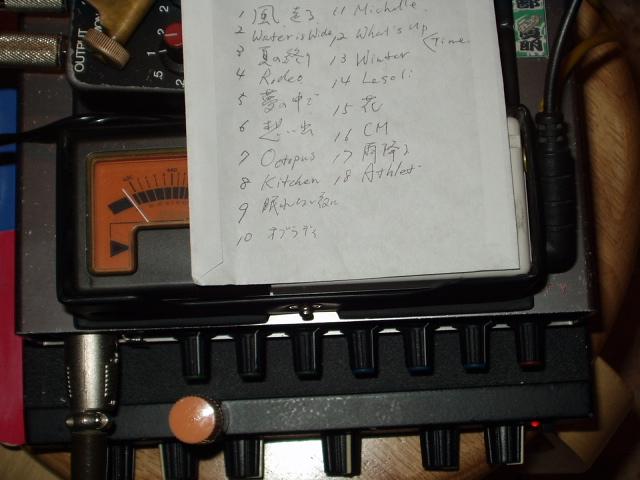 OUTPUT
1 風 走る
2 Water is Wide
3 夏の終り
4 Rodeo
5 夢の中で
6 想い出
7 Octopus
8 Kitchen
9 眠れない夜に
10 オブラディ
11 Michelle
12 What's Up
Time
13 Winter
14
15 花
16 CM
17 雨降り
18 Athlet